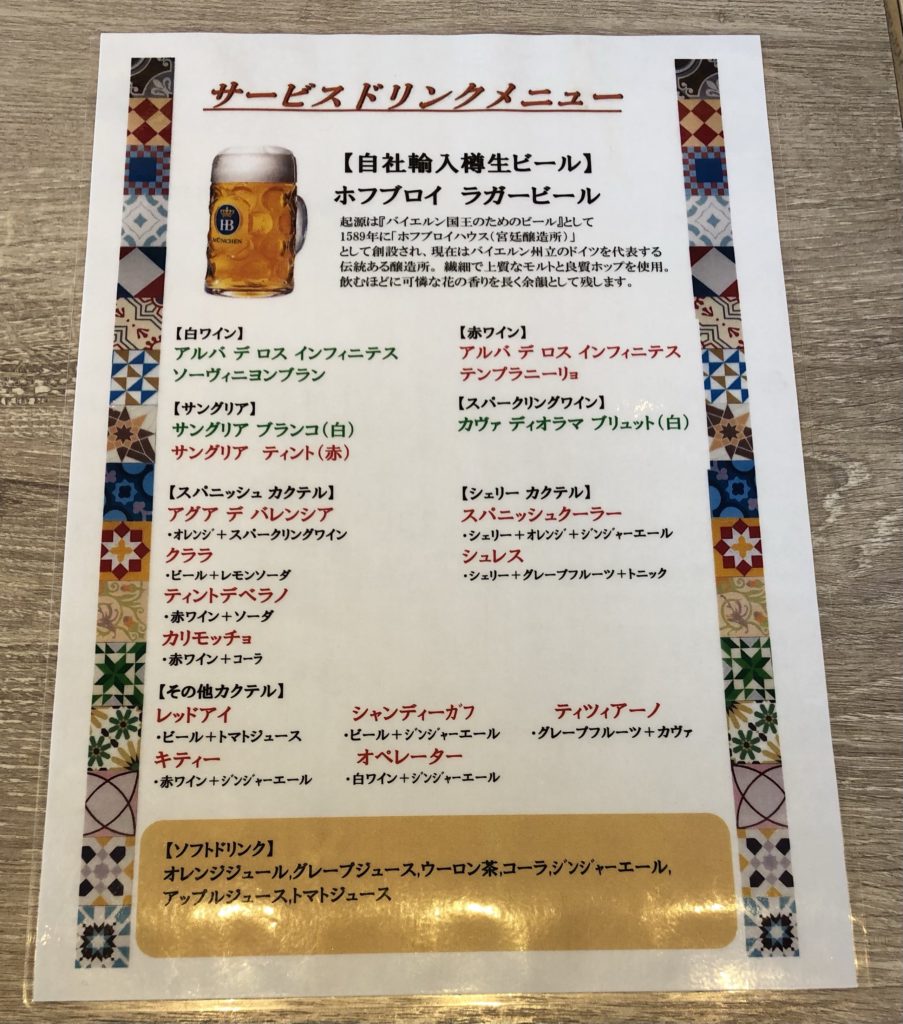 サービスドリンクメニュー
【自社輸入樽生ビール】
ホフブロイ ラガービール
起源は『バイエルン国王のためのビール』として
1589年に「ホフブロイハウス(宮廷醸造所)」
として創設され、現在はバイエルン州立のドイツを代表する
伝統ある醸造所。繊細で上質なモルトと良質ホップを使用。
飲むほどに可憐な花の香りを長く余韻として残します。
HB
MÜNCHEN
【白ワイン】
アルバ デ ロス インフィニテス
ソーヴィニヨンブラン
【赤ワイン】
アルバ デ ロス インフィニテス
テンプラニーリョ
【サングリア】
サングリア ブランコ(白)
サングリア ティント(赤)
【スパークリングワイン】
カヴァ ディオラマ ブリュット(白)
【スパニッシュ カクテル】
アグア デ バレンシア
・オレンジ+スパークリングワイン
クララ
・ビール+レモンソーダ
ティントデベラノ
・赤ワイン+ソーダ
カリモッチョ
・赤ワイン+コーラ
【シェリー カクテル】
スパニッシュクーラー
・シェリー+オレンジ+ジンジャーエール
シュレス
・シェリー+グレープフルーツ+トニック
【その他カクテル】
レッドアイ
・ビール+トマトジュース
シャンディーガフ
・ビール+ジンジャーエール
ティツィアーノ
・グレープフルーツ+カヴァ
キティー
・赤ワイン+ジンジャーエール
オペレーター
・白ワイン+ジンジャーエール
【ソフトドリンク】
オレンジジュール,グレープジュース,ウーロン茶,コーラ,ジンジャーエール,
アップルジュース,トマトジュース